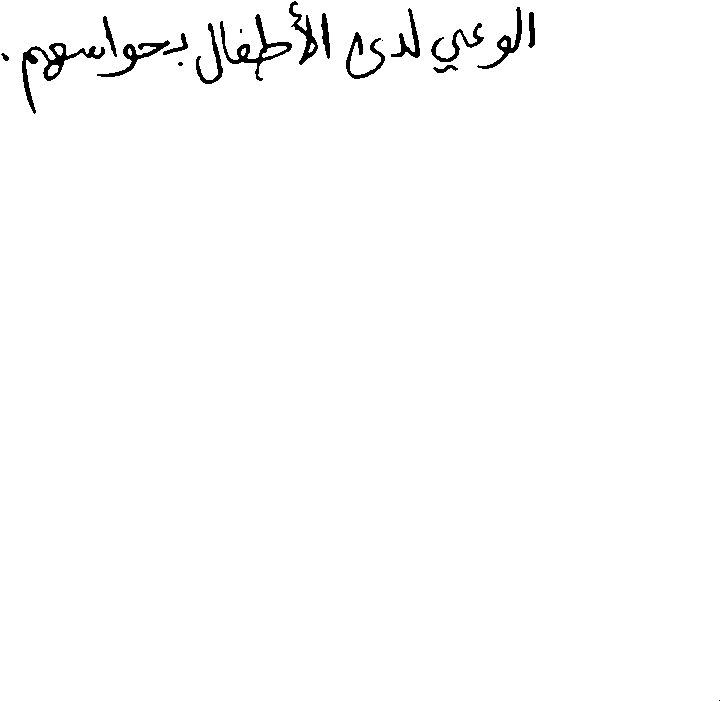 الوعي لدى الأطفال بحواسهم.